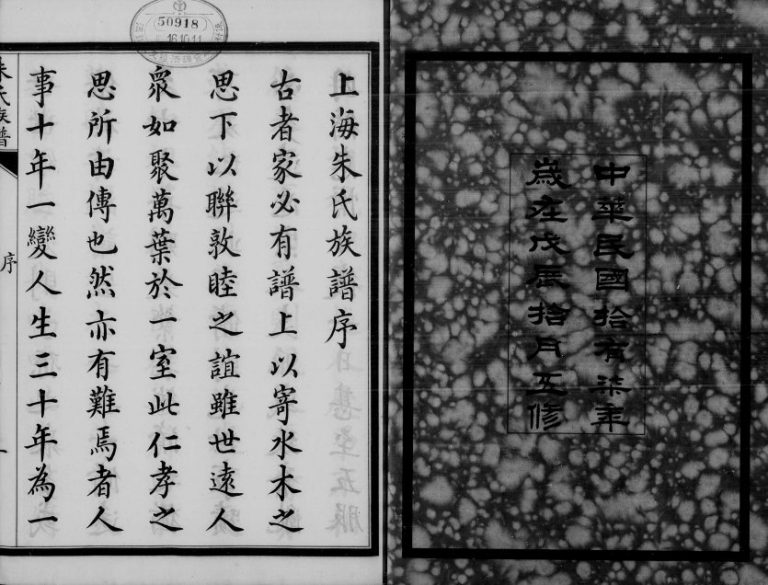 中華民國拾有柒年
歲在戊辰拾月五修
50918
16.10.11
上海朱氏族譜序
古者家必有譜上以寄水木之
思下以聯敦睦之誼雖世遠人
衆如聚萬葉於一室此仁孝之
思所由傳也然亦有難焉者人
事十年一變人生三十年為一
朱氏族譜
序